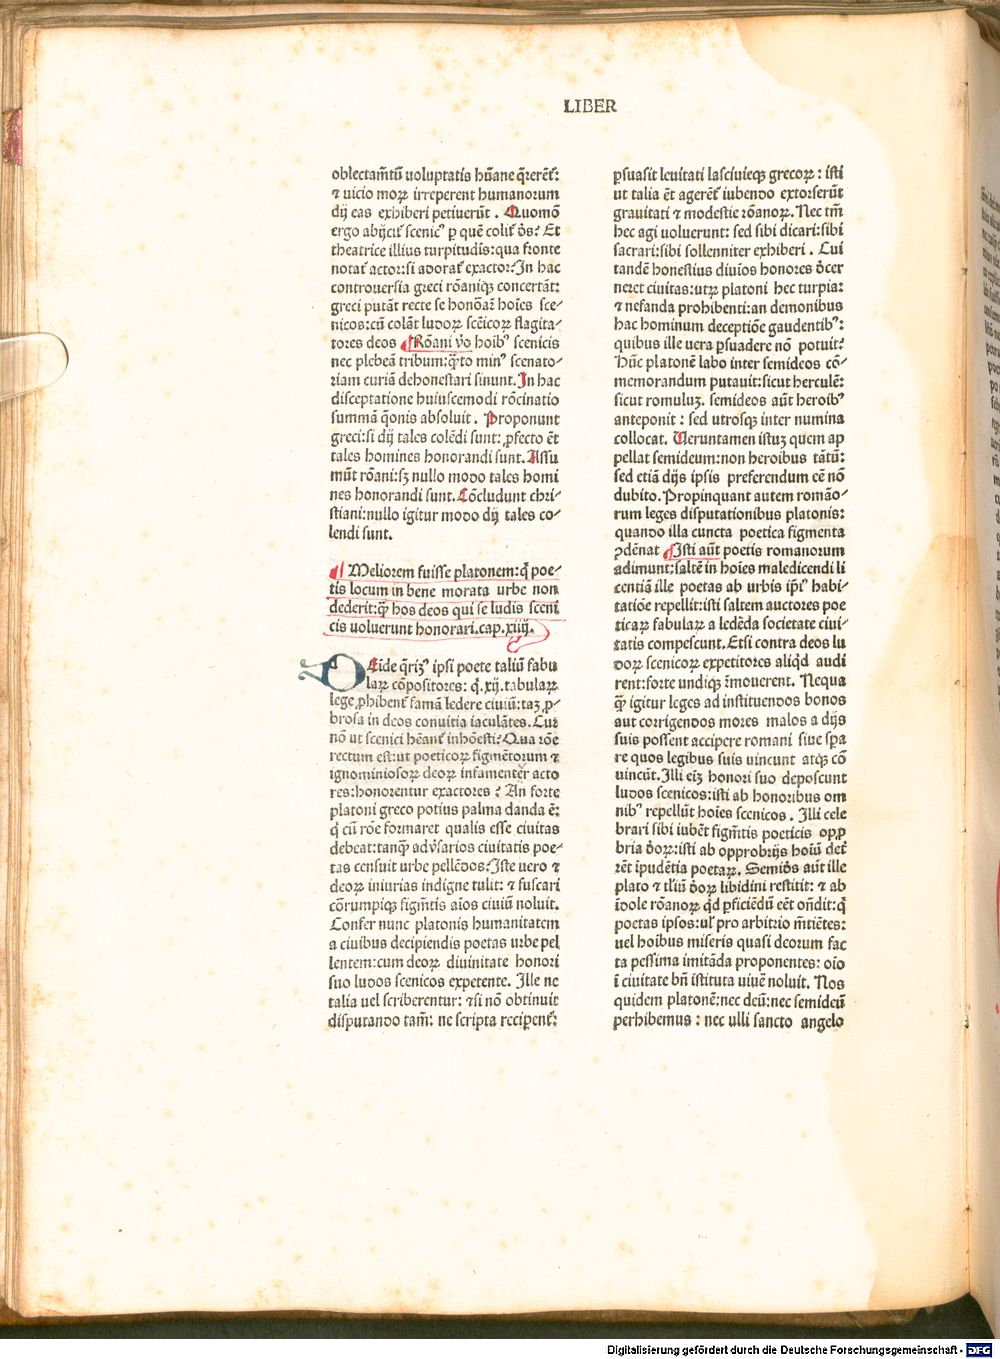 LIBER
oblectam̄tū uoluptatis hūane q̄rerēt᷑:
⁊ uicio moꝝ irreperent humanorum
dij eas exhiberi petiuerūt . Quomō
ergo abijcit᷑ scenicꝰ ꝑ quē colit᷑ ds̄? Et
theatrice illius turpitudis: qua fronte
notat᷑ actor: si adorat᷑ exactor? In hac
controuersia greci rōaniqꝫ concertāt:
greci putāt recte se honōaꝛe hoīes sce⸗
nicos: cū colāt ludoꝝ scēicoꝝ flagita⸗
tores deos ¶Rōani v̄o hoībꝰ scenicis
nec plebeā tribum: q̄to minꝰ scenato⸗
riam curiā dehonestari sinunt. In hac
disceptatione huiuscemodi rōcinatio
summā q̄onis absoluit . Proponunt
greci: si dij tales colēdi sunt: ꝓfecto ēt
tales homines honorandi sunt. Assu
mūt rōani: sꝫ nullo modo tales homi
nes honorandi sunt. Cōcludunt chri⸗
stiani: nullo igitur modo dij tales co⸗
lendi sunt.
¶ Meliorem fuisse platonem: q̄ poe⸗
tis locum in bene morata urbe non
dederit: q̄ꝫ hos deos qui se ludis sceni
cis uoluerunt honorari. cap. xiiij.
DEide q̄rimꝰ ipsi poete taliū fabu
laꝝ cōpositores: q̄ .xij. tabulaꝝ
lege ꝓhibent᷑ famā ledere ciuiū: tāꝫ ꝓ⸗
brosa in deos conuitia iaculātes. Cur
nō ut scenici hēant᷑ inhōesti? Qua rōe
rectum est: ut poeticoꝝ figmētorum ⁊
ignominiosoꝝ deoꝝ infamentēr acto
res: honorentur exactores ? An forte
platoni greco potius palma danda ē:
q̄ cū rōe formaret qualis esse ciuitas
debeat: tanqꝫ adūsarios ciuitatis poe⸗
tas censuit urbe pellēdos? Iste uero ⁊
deoꝝ iniurias indigne tulit: ⁊ fuscari
cōrumpiqꝫ figm̄tis aīos ciuiū noluit.
Confer nunc platonis humanitatem
a ciuibus decipiendis poetas urbe pel
lentem: cum deoꝝ diuinitate honori
suo ludos scenicos expetente. Ille ne
talia uel scriberentur: ⁊ si nō obtinuit
disputando tam̄: ne scripta recipent᷑:
ꝑsuasit leuitati lasciuieqꝫ grecoꝝ: isti
ut talia ēt agerēt᷑ iubendo extorserūt
grauitati ⁊ modestie rōanoꝝ. Nec tm̄
hec agi uoluerunt: sed sibi dicari: sibi
sacrari: sibi sollenniter exhiberi . Cui
tandē honestius diuīos honores dcer
neret ciuitas: utꝝ platoni hec turpia:
⁊ nefanda prohibenti: an demonibus
hac hominum deceptiōe gaudentibꝰ:
quibus ille uera ꝑsuadere nō potuit?
Hūc platonē labo inter semideos cō⸗
memorandum putauit: sicut herculē:
sicut romuluꝫ. semideos aūt heroibꝰ
anteponit : sed utrosqꝫ inter numina
collocat. Veruntamen istuꝫ quem ap
pellat semideum: non heroibus tātū:
sed etiā dijs ipsis preferendum eē nō
dubito. Propinquant autem romāo⸗
rum leges disputationibus platonis:
quando illa cuncta poetica figmenta
ꝯdēnat ¶Isti aūt poetis romanorum
adimunt: saltē in hoīes maledicendi li
centiā ille poetas ab urbis ip̄iꝰ habi⸗
tatiōe repellit: isti saltem auctores poe
ticaꝝ fabulaꝝ a ledēda societate ciui⸗
tatis compescunt. Etsi contra deos lu
doꝝ scenicoꝝ expetitores aliqd̄ audi
rent: forte undiqꝫ īmouerent. Nequa
q̄ꝫ igitur leges ad instituendos bonos
aut corrigendos mores malos a dijs
suis possent accipere romani siue spa
re quos legibus suis uincunt atqꝫ cō
uincūt. Illi eīꝫ honori suo deposcunt
ludos scenicos: isti ab honoribus om
nibꝰ repellūt hoīes scenicos . Illi cele
brari sibi iubēt figm̄tis poeticis opꝓ
bria dōꝝ: isti ab opprobrijs hoīū det᷑
rēt īpudētia poetaꝝ. Semids̄ aūt ille
plato ⁊ tl̄iū dōꝝ libidini restitit: ⁊ ab
īdole rōanoꝝ qd̄ ꝑficiēdū eēt on̄dit: q̄
poetas ipsos: ul᷑ pro arbitrio m̄tiētes:
uel hoībus miseris quasi deorum fac
ta pessima imitāda proponentes: oīo
ī ciuitate bn̄ īstituta uiuē noluit. Nos
quidem platonē: nec deū: nec semideū
perhibemus : nec ulli sancto angelo
Digitalisierung gefördert durch die Deutsche Forschungsgemeinschaft - DFG